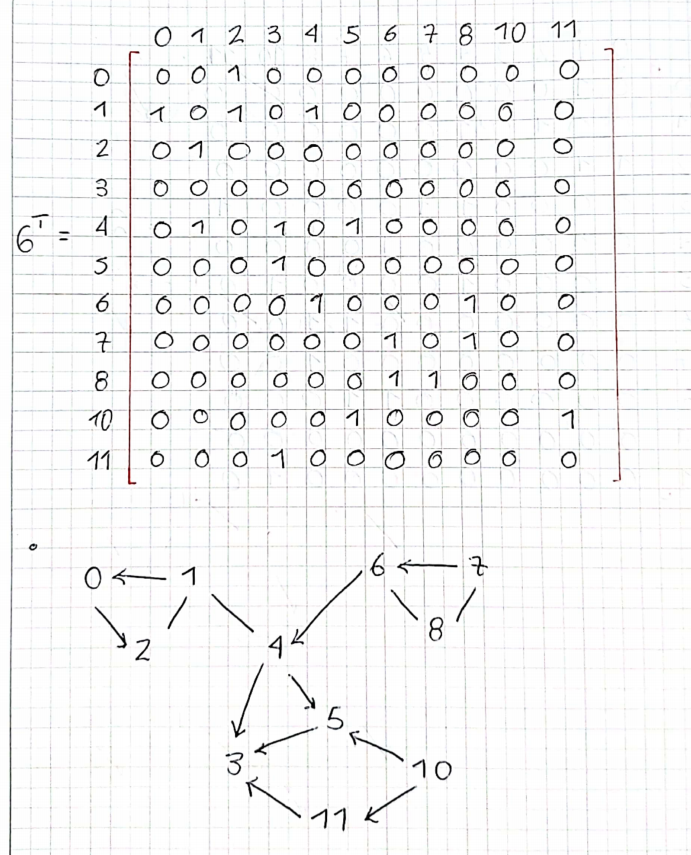 0 1 2 3 4 5 6 7 8 10 11
0 0 0 1 0 0 0 0 0 0 0 0
1 1 0 1 0 1 0 0 0 0 0 0
2 0 1 0 0 0 0 0 0 0 0 0
3 0 0 0 0 0 0 0 0 0 0 0
6ᵀ = 4 0 1 0 1 0 1 0 0 0 0 0
5 0 0 0 1 0 0 0 0 0 0 0
6 0 0 0 0 1 0 0 0 1 0 0
7 0 0 0 0 0 0 1 0 1 0 0
8 0 0 0 0 0 0 1 1 0 0 0
10 0 0 0 0 0 1 0 0 0 0 1
11 0 0 0 1 0 0 0 0 0 0 0
0 1 6 7
2 4 8
5
3 10
11